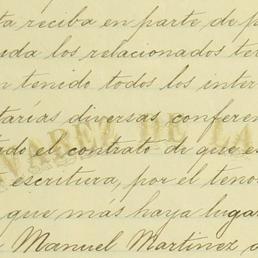 ta reciba en parte de p
uda los relacionados té
n tenido todos los inter
tarías diversas conferen
tado el contrato de que es
escritura, por el teno
que más haya lugar
Manuel Martinez